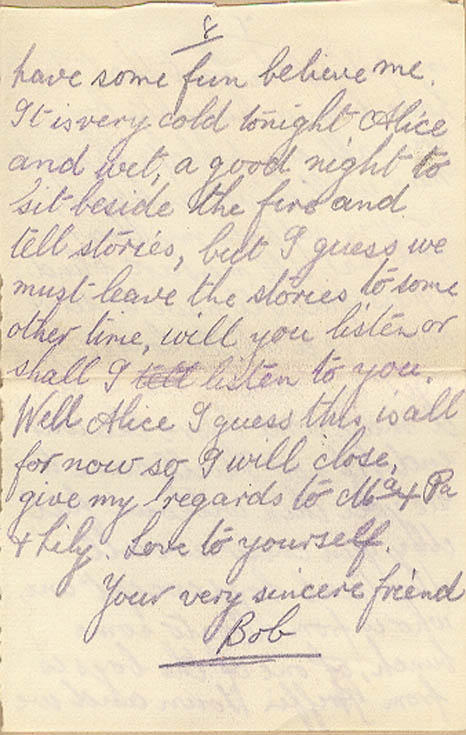 8
have some fun believe me.
It is very cold tonight Alice
and wet, a good night to
sit beside the fire and
tell stories, but I guess we
must leave the stories to some
other time, will you listen or
shall I tell listen to you.
Well Alice I guess this is all
for now so I will close,
give my regards to Ma + Pa
+ Lily. Love to yourself.
Your very sincere friend
Bob